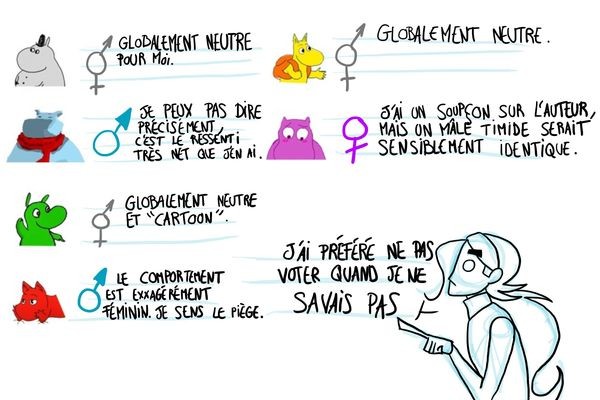 GLOBALEMENT NEUTRE
POUR MOI.
GLOBALEMENT NEUTRE.
JE PEUX PAS DIRE
PRÉCISÉMENT,
C'EST LE RESSENTI
TRÈS NET QUE J'EN AI.
J'AI UN SOUPÇON SUR L'AUTEUR,
MAIS UN MÂLE TIMIDE SERAIT
SENSIBLEMENT IDENTIQUE.
GLOBALEMENT NEUTRE
ET "CARTOON".
LE COMPORTEMENT
EST EXXAGÉRÉMENT
FÉMININ. JE SENS LE PIÈGE.
J'AI PRÉFÉRÉ NE PAS
VOTER QUAND JE NE
SAVAIS PAS